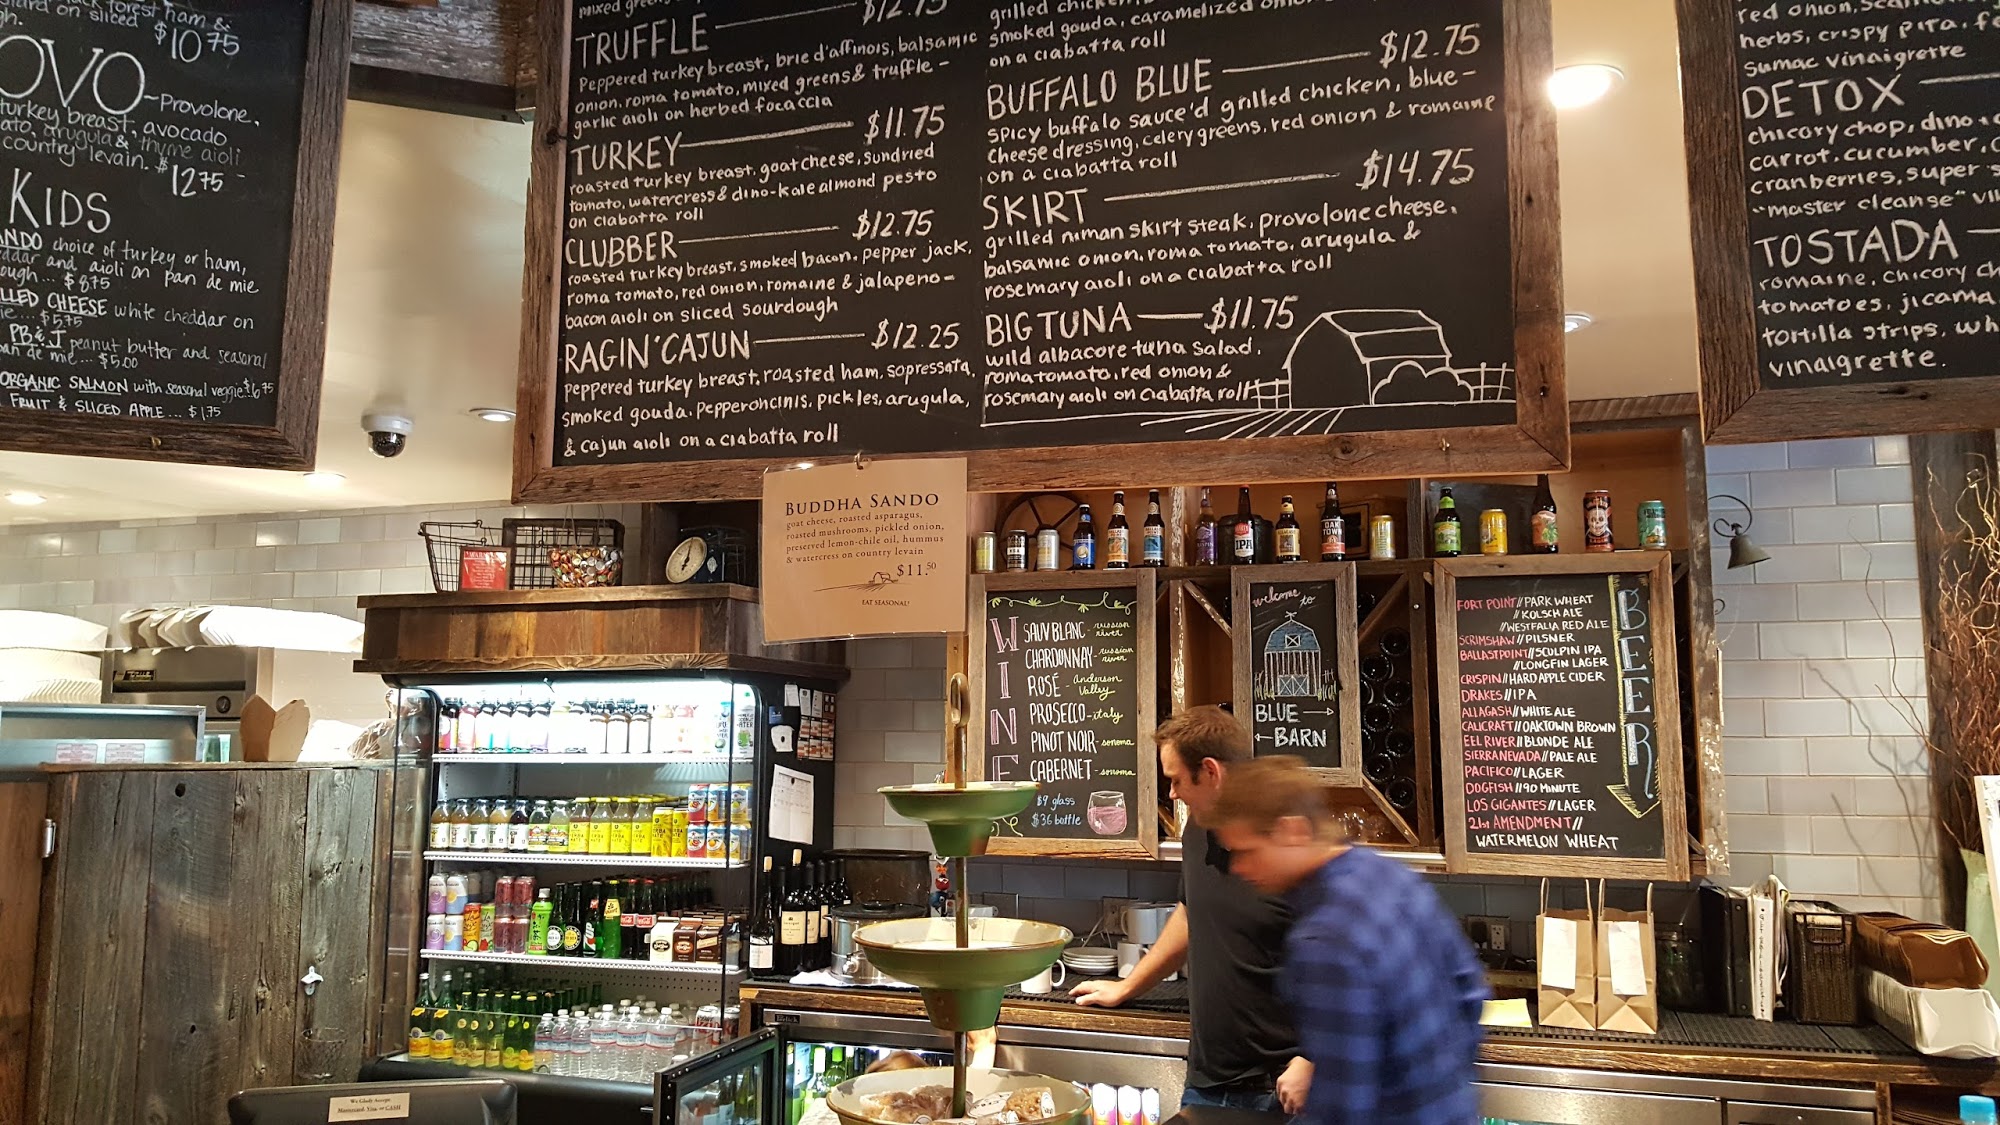 forest ham &
on sliced
$10.75
OVO - Provolone,
turkey breast, avocado
arugula & thyme aioli
country levain. $12.75
KIDS
choice of turkey or ham,
and aioli on pan de mie
$8.75
CHEESE white cheddar on
$5.75
PB&J peanut butter and seasonal
pan de mie... $5.00
ORGANIC SALMON with seasonal veggie $6.75
FRUIT & SLICED APPLE... $1.75
$12.75
TRUFFLE
Peppered turkey breast, brie d'affinois, balsamic
onion, roma tomato, mixed greens & truffle -
garlic aioli on herbed focaccia
TURKEY $11.75
roasted turkey breast, goat cheese, sundried
tomato, watercress & dino-kale almond pesto
on ciabatta roll
CLUBBER $12.75
roasted turkey breast, smoked bacon, pepper jack,
roma tomato, red onion, romaine & jalapeno -
bacon aioli on sliced sourdough
RAGIN' CAJUN $12.25
peppered turkey breast, roasted ham, sopressata,
smoked gouda, pepperoncinis, pickles, arugula,
& cajun aioli on a ciabatta roll
grilled chicken,
smoked gouda, caramelized
on a ciabatta roll
BUFFALO BLUE $12.75
spicy buffalo sauce'd grilled chicken, blue -
cheese dressing, celery greens, red onion & romaine
on a ciabatta roll
SKIRT $14.75
grilled niman skirt steak, provolone cheese,
balsamic onion, roma tomato, arugula &
rosemary aioli on a ciabatta roll
BIG TUNA $11.75
wild albacore tuna salad,
roma tomato, red onion &
rosemary aioli on ciabatta roll
red onion,
herbs, crispy pita,
sumac vinaigrette
DETOX
chicory chop, dino
carrot, cucumber,
cranberries, super
"master cleanse"
TOSTADA
romaine, chicory
tomatoes, jicama
tortilla strips,
vinaigrette.
BUDDHA SANDO
goat cheese, roasted asparagus,
roasted mushrooms, pickled onion,
preserved lemon-chile oil, hummus
& watercress on country levain
$11.50
EAT SEASONAL!
WINE
SAUV BLANC - russian river
CHARDONNAY - russian river
ROSÉ - Anderson Valley
PROSECCO - italy
PINOT NOIR - sonoma
CABERNET - sonoma
$9 glass
$36 bottle
welcome to
BLUE
BARN
BEER
FORT POINT // PARK WHEAT
// KOLSCH ALE
// WESTFALIA RED ALE
SCRIMSHAW // PILSNER
BALLAST POINT // SCULPIN IPA
// LONGFIN LAGER
CRISPIN // HARD APPLE CIDER
DRAKES // IPA
ALLAGASH // WHITE ALE
CALICRAFT // OAKTOWN BROWN
EEL RIVER // BLONDE ALE
SIERRA NEVADA // PALE ALE
PACIFICO // LAGER
DOGFISH // 90 MINUTE
LOS GIGANTES // LAGER
21st AMENDMENT //
WATERMELON WHEAT
IPA
OAK TOWN
We Gladly Accept
Mastercard, Visa, or CASH